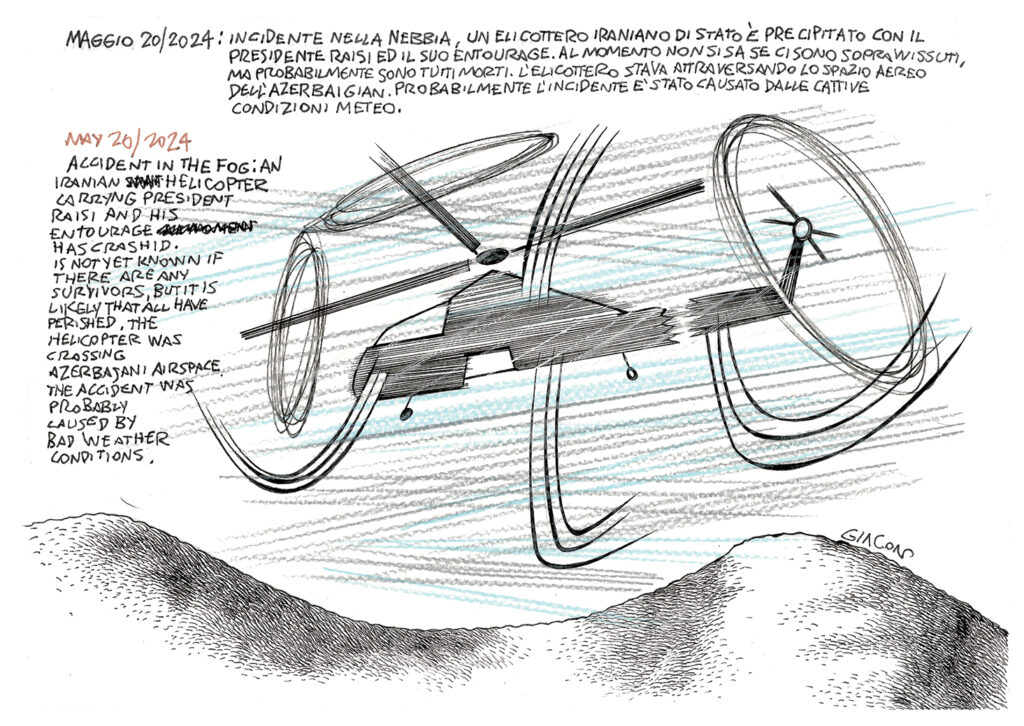 MAGGIO 20/2024: INCIDENTE NELLA NEBBIA, UN ELICOTTERO IRANIANO DI STATO È PRECIPITATO CON IL
PRESIDENTE RAISI ED IL SUO ENTOURAGE. AL MOMENTO NON SI SA SE CI SONO SOPRAWISSUTI,
MA PROBABILMENTE SONO TUTTI MORTI. L'ELICOTTERO STAVA ATTRAVERSANDO LO SPAZIO AEREO
DELL'AZERBAIGIAN. PROBABILMENTE L'INCIDENTE E' STATO CAUSATO DALLE CATTIVE
CONDIZIONI METEO.
MAY 20/2024
ACCIDENT IN THE FOG: AN
IRANIAN HELICOPTER
CARRYNG PRESIDENT
RAISI AND HIS
ENTOURAGE
HAS CRASHID.
IS NOT YET KNOWN IF
THERE ARE ANY
SURVIVORS, BUT IT IS
LIKELY THAT ALL HAVE
PERISHED. THE
HELICOPTER WAS
CROSSING
AZERBAJANI AIRSPACE.
THE ACCIDENT WAS
PROBABLY
CAUSED BY
BAD WEATHER
CONDITIONS.
GIACON